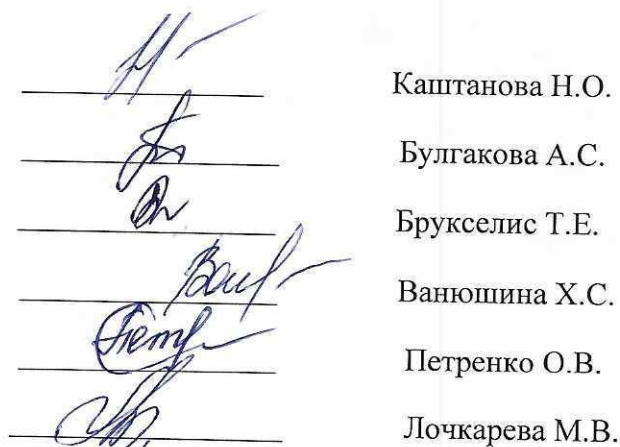 Каштанова Н.О.
Булгакова А.С.
Брукселис Т.Е.
Ванюшина Х.С.
Петренко О.В.
Лочкарева М.В.